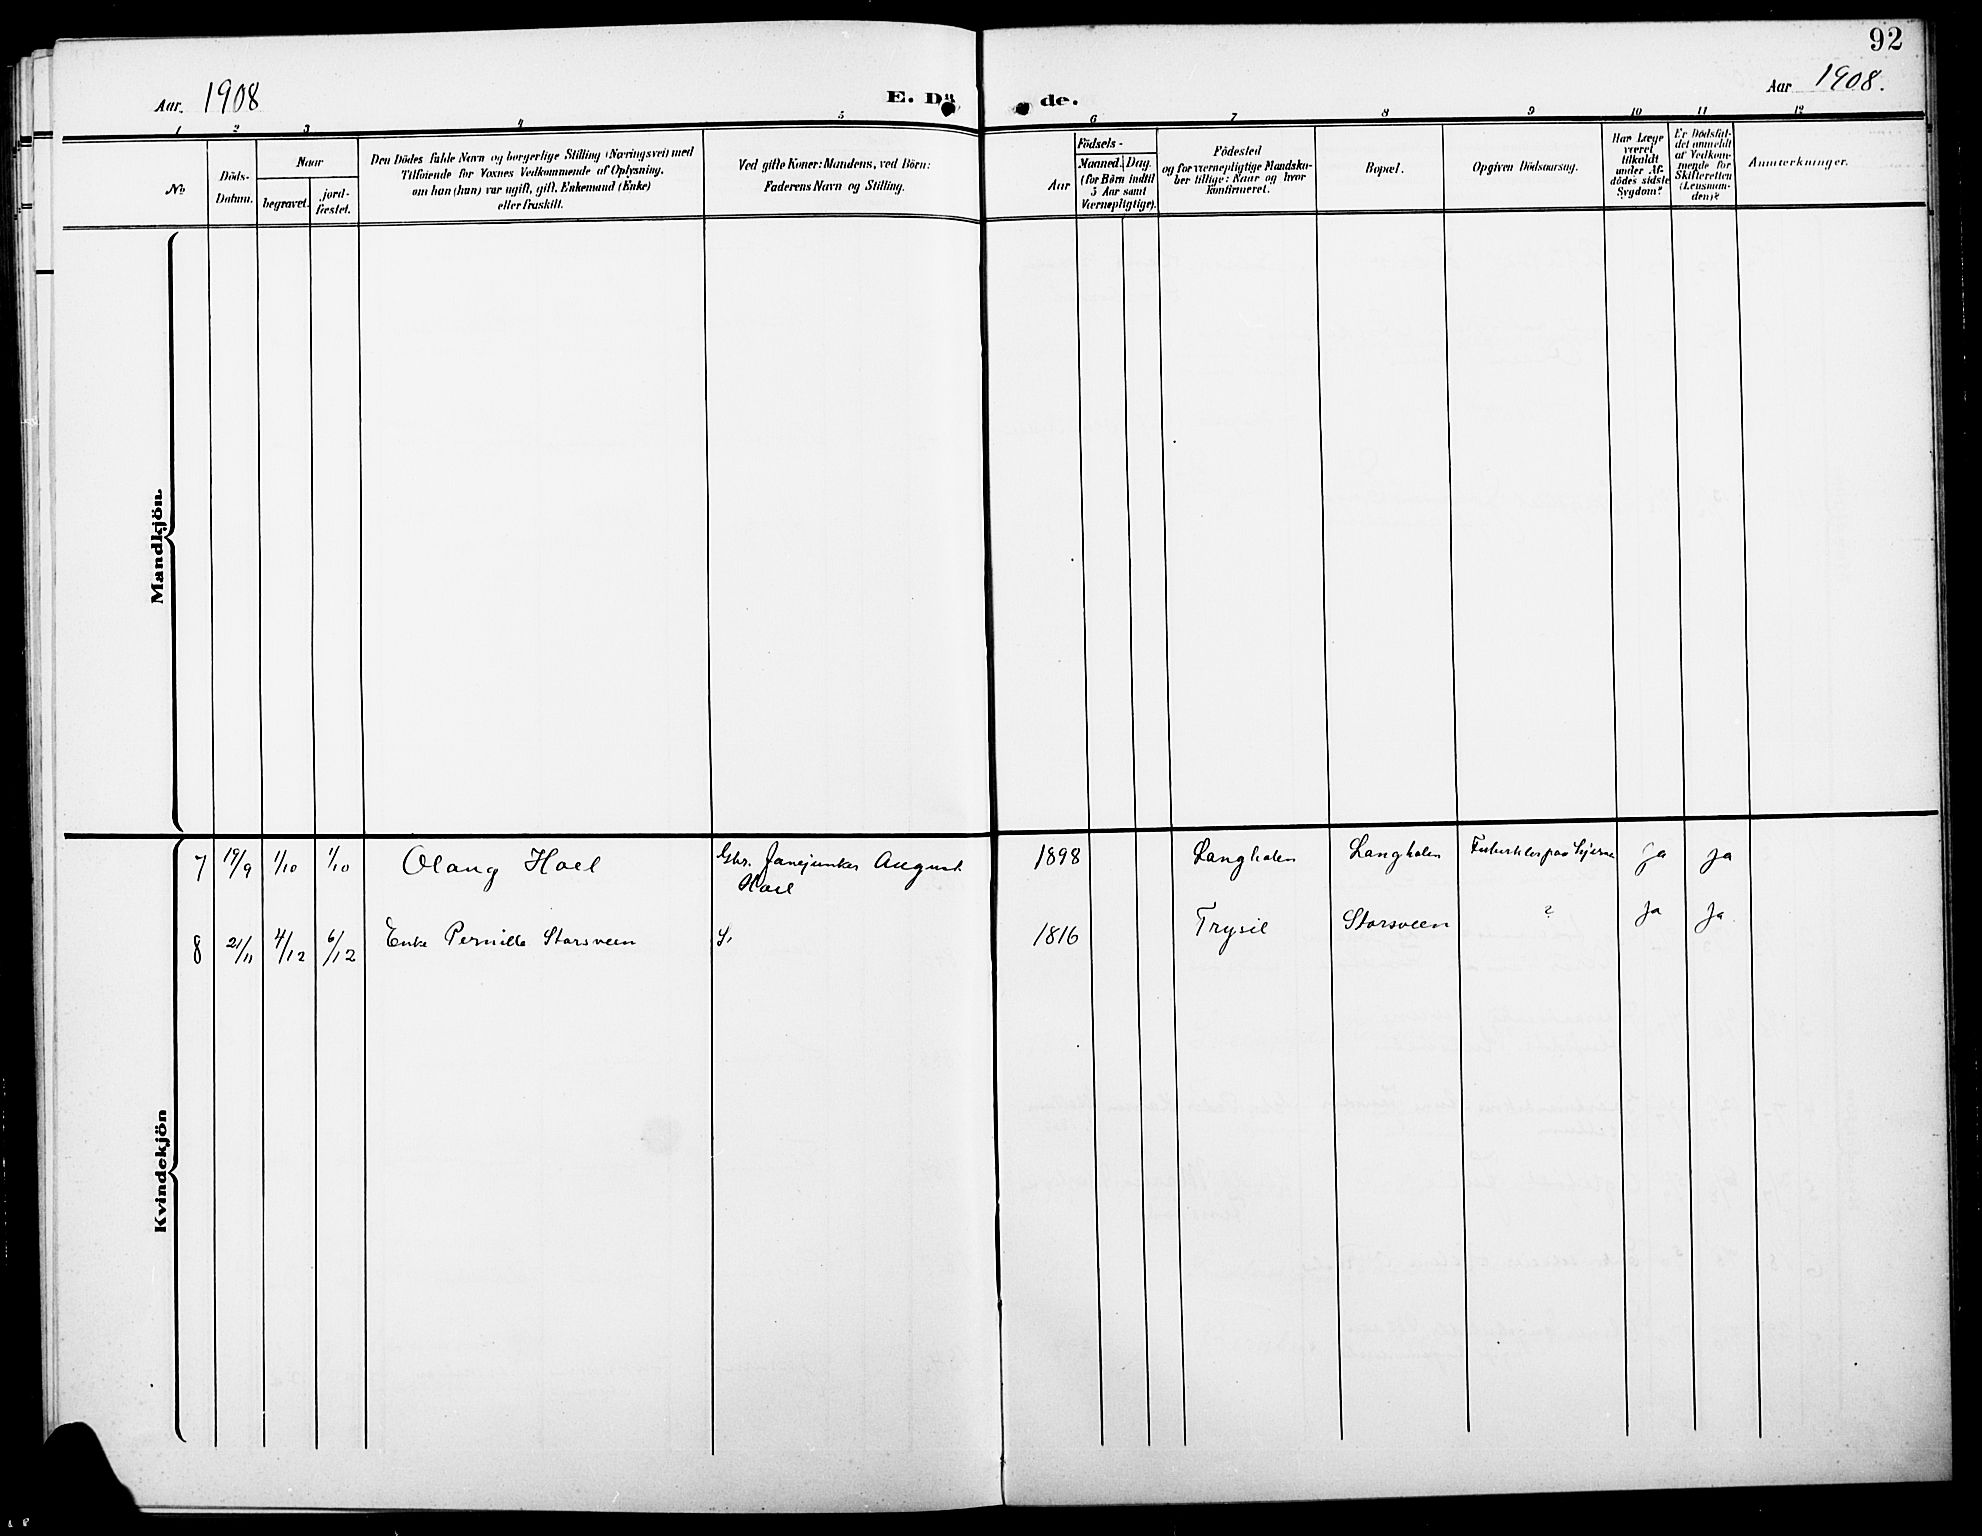 92
Aar. 1908
E. Dö de.
Aar 1908.
1 2 3 4 5 6 7 8 9 10 11 12
No
Döds-
Datum.
Naar
begravet.
jord-
fæstet.
Den Dödes fulde Navn og borgerlige Stilling (Næringsvei) med
Tilföiende for Voxnes Vedkommende af Oplysning,
om han (hun) var ugift, gift, Enkemand (Enke)
eller fraskilt.
Ved gifte Koner: Mandens, ved Börn:
Faderens Navn og Stilling.
Födsels-
Aar
Maaned. Dag.
(for Börn indtil
5 Aar samt
Værnepligtige).
Födested
og for værnepligtige Mandska-
ber tillige: Naar og hvor
konfirmeret.
Bopæl.
Opgiven Dödsaarsag.
Har Læge
været
tilkaldt
under Af-
dödes sidste
Sygdom?
Er Dödsfal-
det anmeldt
af Vedkom-
mende for
Skifteretten
(Lensman-
den)?
Anmærkninger.
Mandkjön.
Kvindekjön
7 19/9 1/10 1/10 Olaug Hoel Gbr. August 1898 Langholen Langholen ja ja
Hoel
8 21/11 4/12 6/12 Enke Pernille Storsveen 1816 Trysil Storsveen ? ja ja